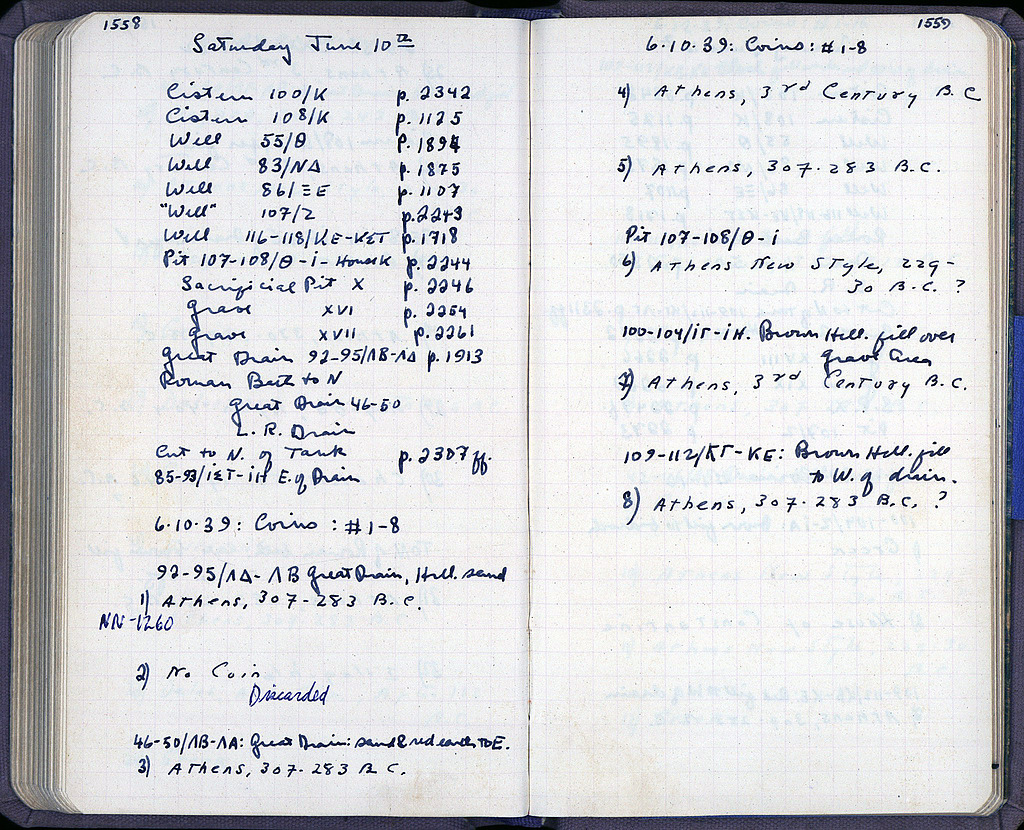 1558
Saturday June 10th
Cistern 100/K p. 2342
Cistern 108/K p. 1125
Well 55/Θ p. 1894
Well 83/ΝΔ p. 1875
Well 86/ΞΕ p. 1107
"Well" 107/2 p. 2243
Well 116-118/ΚΕ-ΚΣΤ p. 1718
Pit 107-108/Θ-i-House K p. 2244
Sacrificial Pit X p. 2246
Grave XVI p. 2254
Grave XVII p. 2261
Great Drain 92-95/ΛΒ-ΛΔ p. 1913
Roman Bath to N
Great Drain 46-50
L.R. Drain
Cut to N. of Tank p. 2307 ff.
85-93/iΣΤ-iH E. of Drain
6.10.39: Coins: #1-8
92-95/ΛΔ-ΛΒ Great Drain, Hell. sand
1) Athens, 307-283 B.C.
NN-1260
2) No Coin
Discarded
46-50/ΛΒ-ΛΑ: Great Drain: sand & red earth to E.
3) Athens, 307-283 B.C.
1559
6.10.39: Coins: #1-8
4) Athens, 3rd Century B.C
5) Athens, 307-283 B.C.
Pit 107-108/Θ-i
6) Athens New Style, 229-
30 B.C. ?
100-104/iΓ-iH. Brown Hell. fill over
grave area
7) Athens, 3rd Century B.C.
109-112/ΚΓ-ΚΕ: Brown Hell. fill
to W. of drain.
8) Athens, 307-283 B.C. ?